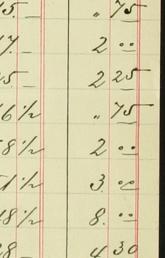 5. — " 75
7. — 2 "
5 — 2 25
6 1/2 " 75
8 1/2 2 "
1 1/2 3. "
8 1/2 8. "
8 — 4 30